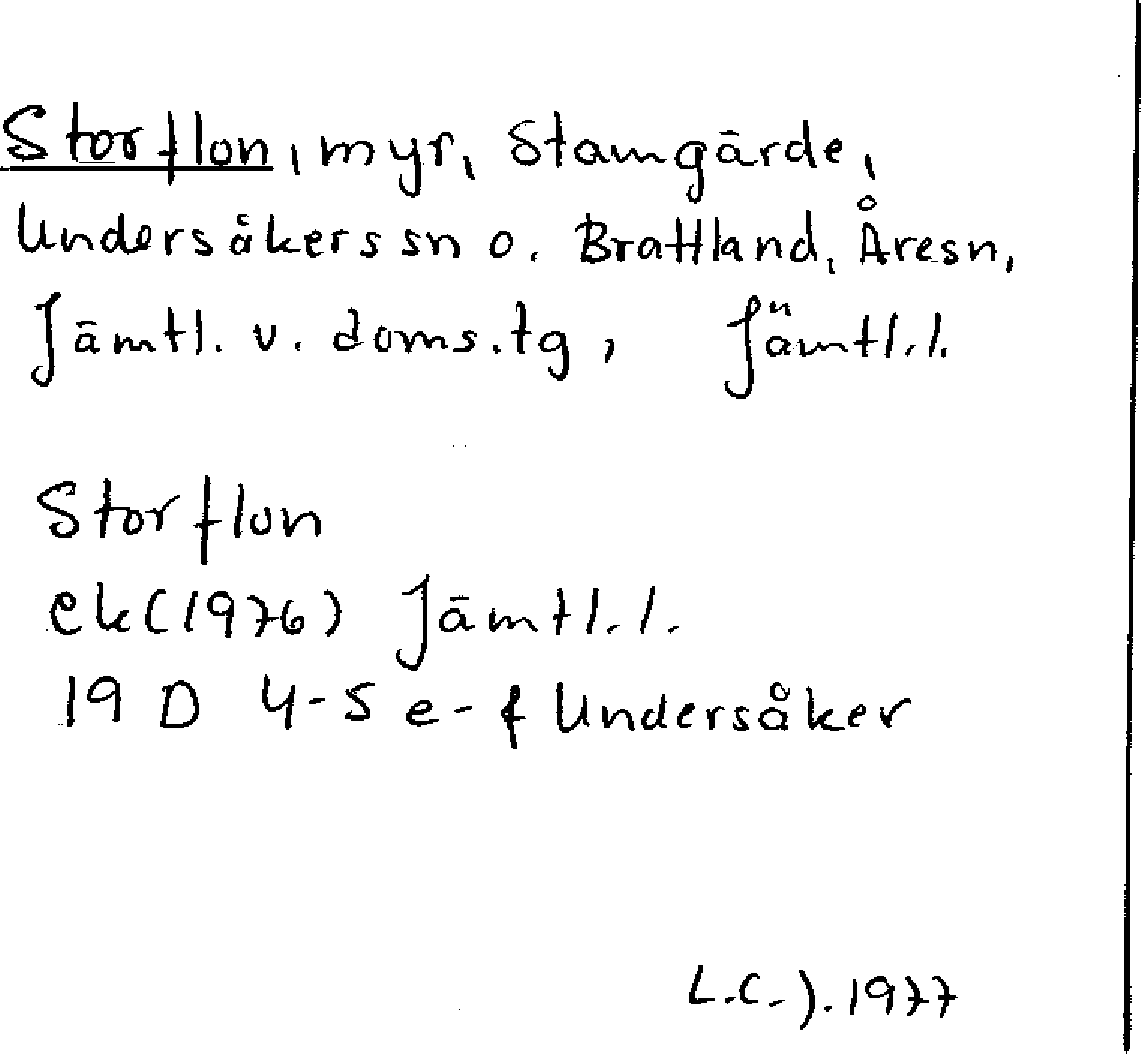 Storflon, myr, Stamgärde,
Undersåkers sn o. Brattland, Åre sn,
Jämtl. v. doms. tg, Jämtl. l.
Storflon
ek (1976) Jämtl. l.
19 D 4-5 e-f Undersåker
L.C.J. 1977